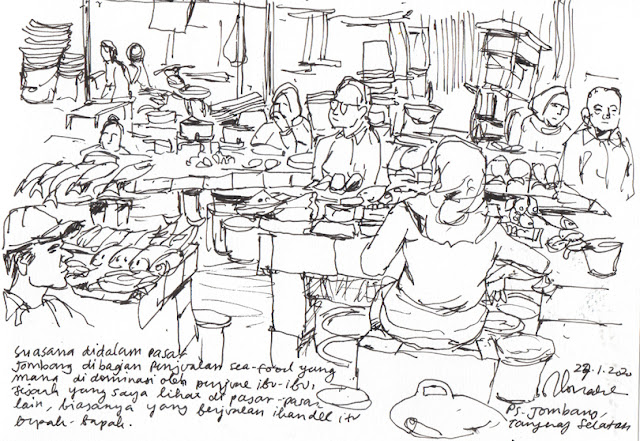 suasana didalam pasar
Jombang di bagian penjualan sea-food yang
mana di dominasi oleh ibu-ibu,
sejauh yang saya lihat di pasar-pasar
lain, biasanya yang berjualan itu
bapak-bapak.
Ps. Jombang,
Selatan